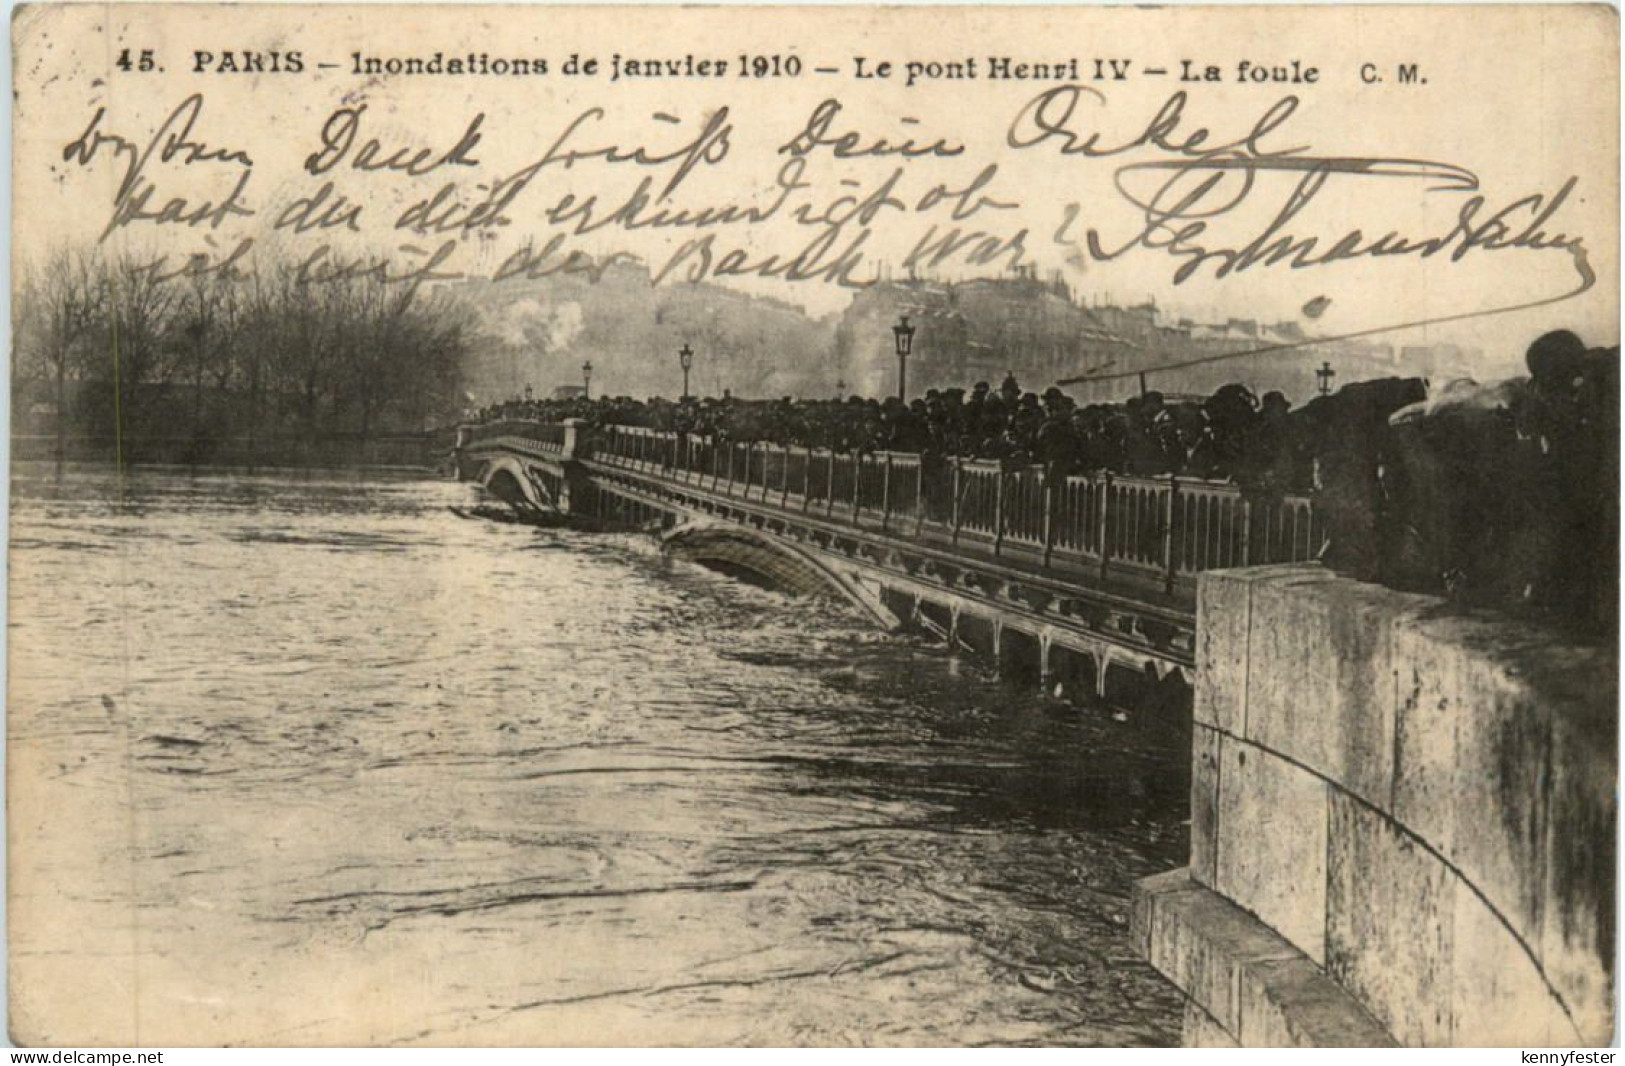 45. PARIS – Inondations de janvier 1910 – Le pont Henri IV – La foule C. M.
Dank Gruß Dein Onkel
hast du dich erkundigt ob
ich bei der Bank war?
www.delcampe.net
kennyfester